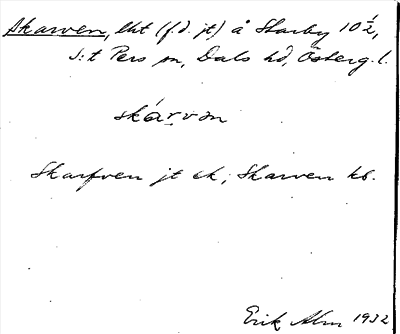 Skarven, lht (f.d. jt) å Skarby 10 ½,
S:t Pers sn, Dals hd, Österg. l.
skárvən
Skarfven jt ek; Skarven kb.
Erik Alm 1932